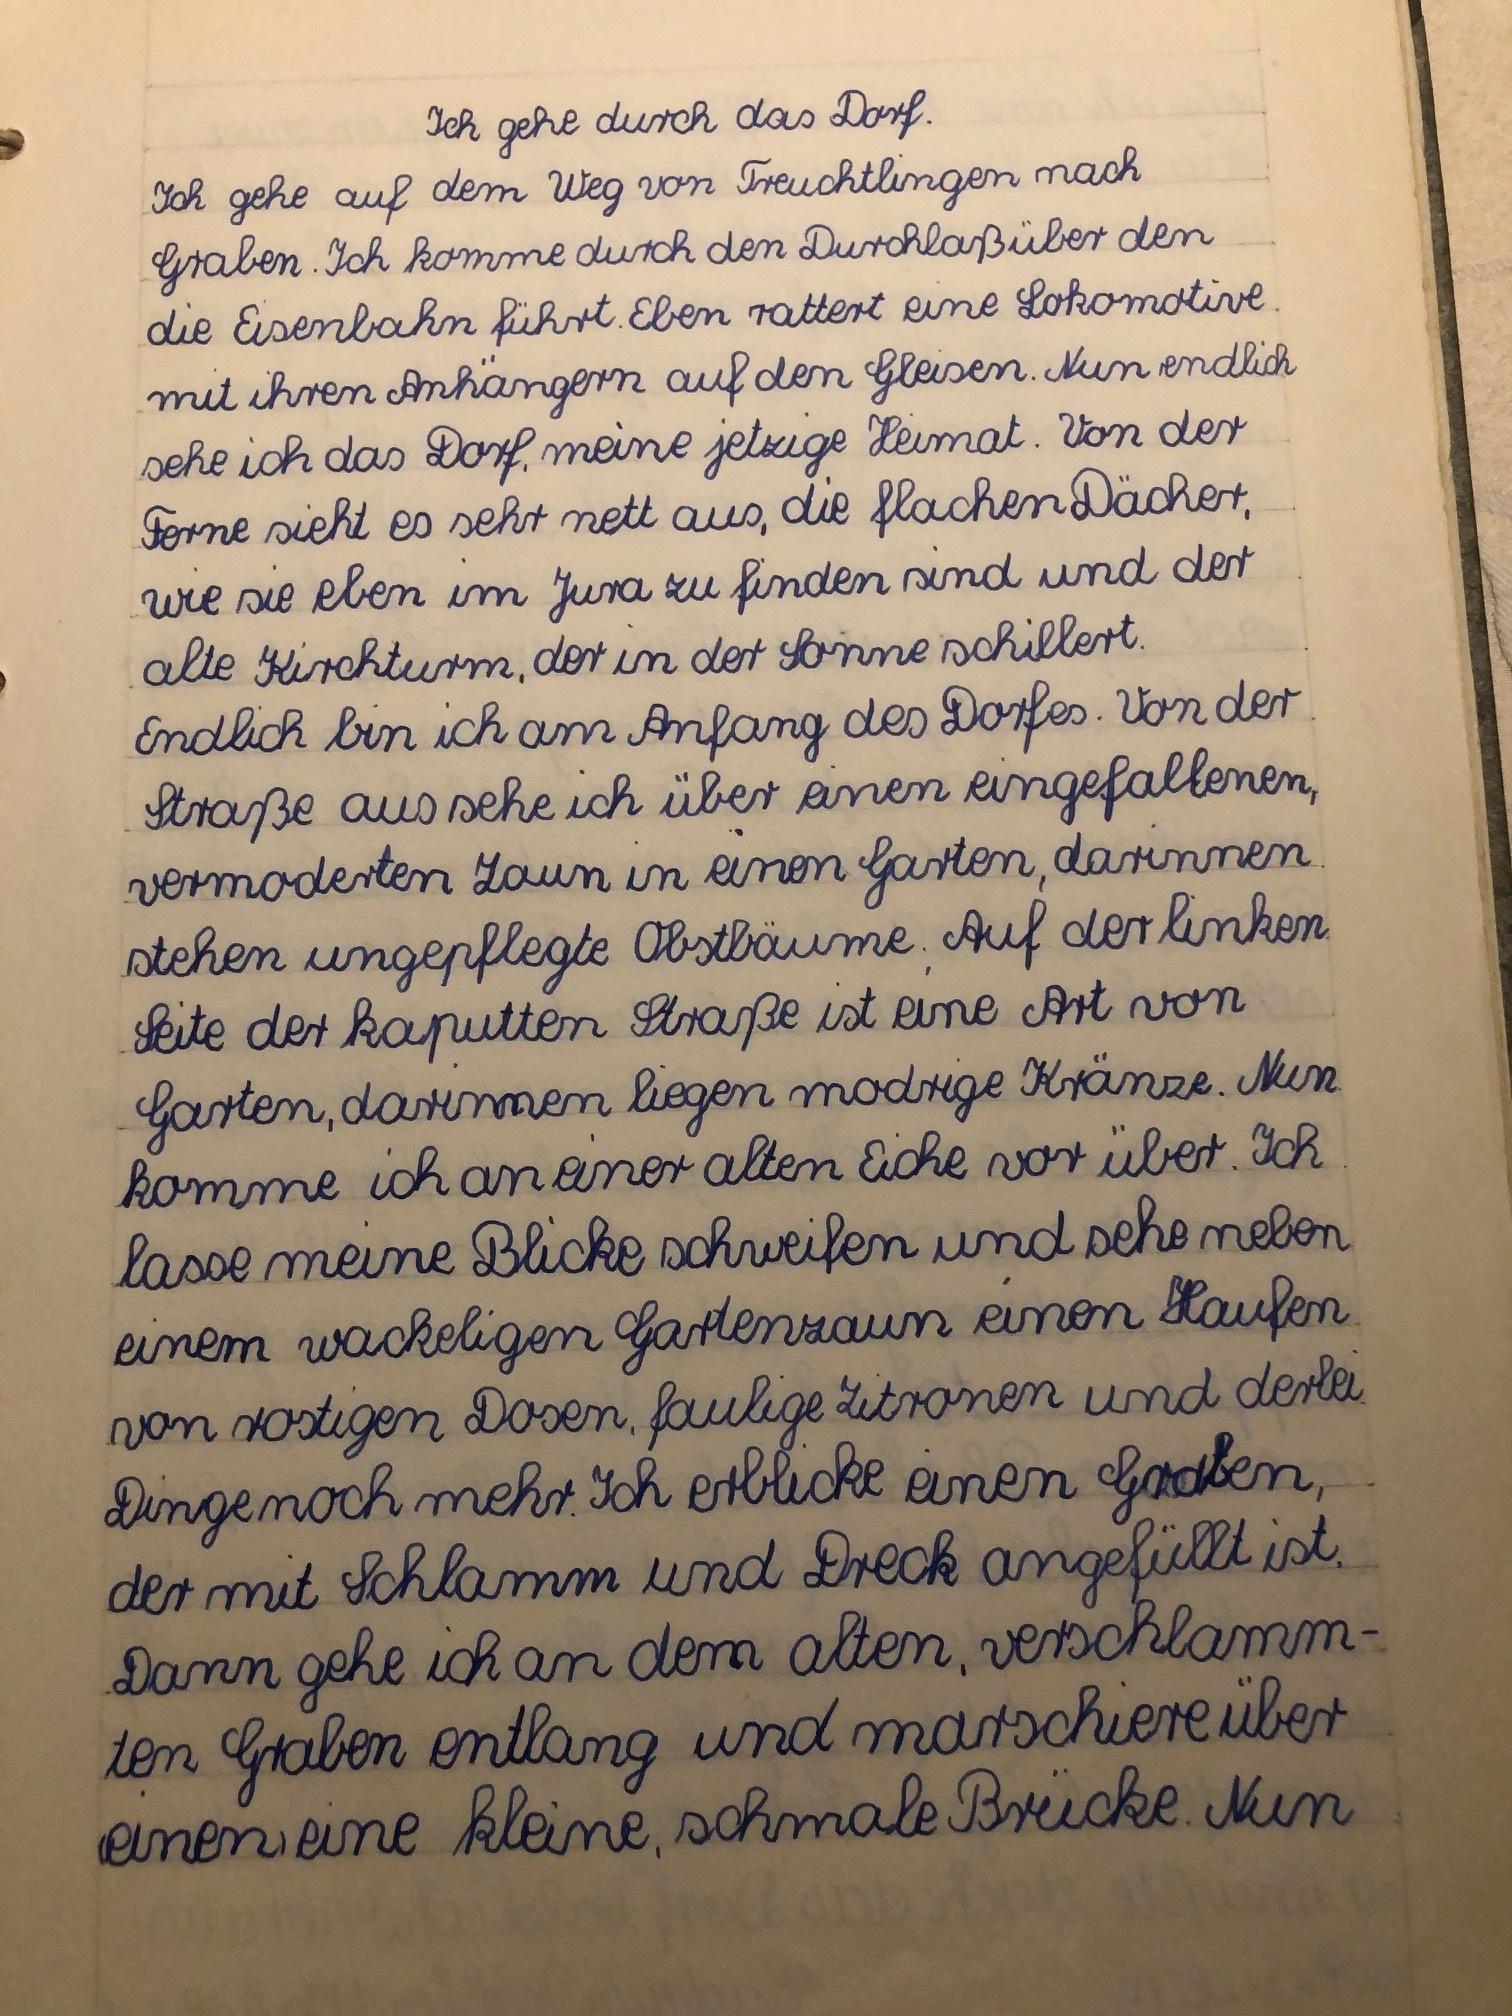 Ich gehe durch das Dorf.
Ich gehe auf dem Weg von Treuchtlingen nach
Graben. Ich komme durch den Durchlaß über den
die Eisenbahn führt. Eben rattert eine Lokomotive
mit ihren Anhängern auf den Gleisen. Nun endlich
sehe ich das Dorf, meine jetzige Heimat. Von der
Ferne sieht es sehr nett aus, die flachen Dächer,
wie sie eben im Jura zu finden sind und der
alte Kirchturm, der in der Sonne schillert.
Endlich bin ich am Anfang des Dorfes. Von der
Straße aus sehe ich über einen eingefallenen,
vermoderten Zaun in einen Garten, darinnen
stehen ungepflegte Obstbäume. Auf der linken
Seite der kaputten Straße ist eine Art von
Garten, darinnen liegen modrige Kränze. Nun
komme ich an einer alten Eiche vor über. Ich
lasse meine Blicke schweifen und sehe neben
einem wackeligen Gartenzaun einen Haufen
von rostigen Dosen, faulige Zitronen und derlei
Dinge noch mehr. Ich erblicke einen Graben,
der mit Schlamm und Dreck angefüllt ist.
Dann gehe ich an dem alten, verschlamm-
ten Graben entlang und marschiere über
(einen) eine kleine, schmale Brücke. Nun